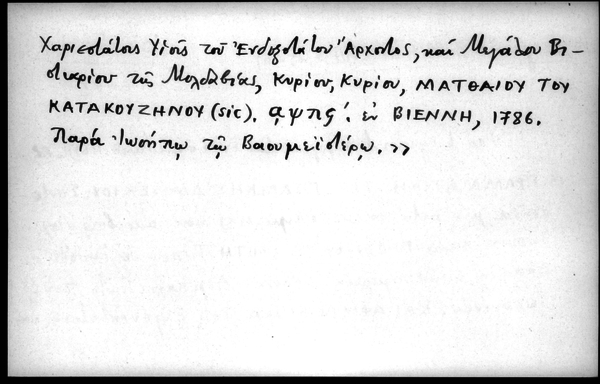 Χαριεστάτοις Υἱοῖς τοῦ Ἐνδοξοτάτου Ἄρχοντος, καὶ Μεγάλου Βι-
στιαρίου τῆς Μολδαβίας, Κυρίου, Κυρίου, ΜΑΤΘΑΙΟΥ ΤΟΥ
ΚΑΤΑΚΟΥΖΗΝΟΥ (sic). αψπς΄. ἐν ΒΙΕΝΝΗ, 1786.
Παρὰ Ἰωσήπῳ τῷ Βαουμεϊστέρῳ. »